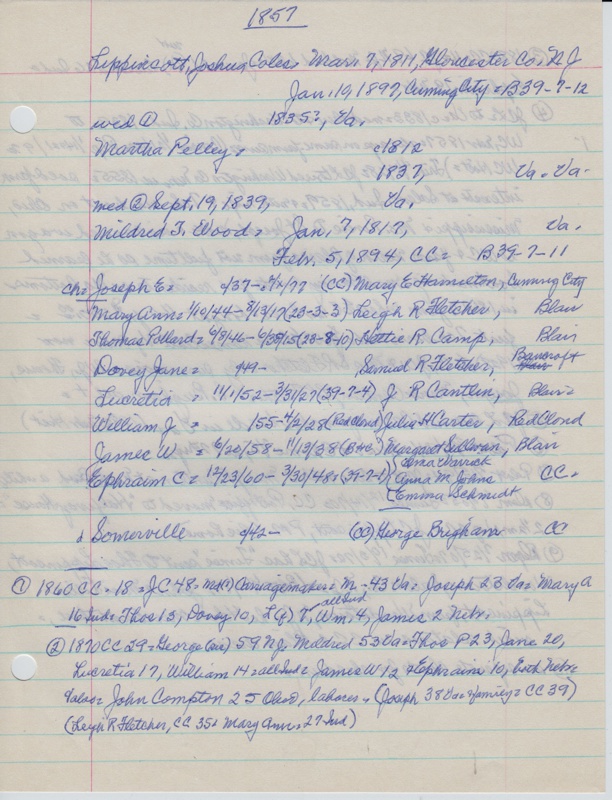 1857
Lippincott, Joshua Coles = Mar. 7, 1811, Gloucester Co., N J
Jan. 19, 1897, Cuming City = B39-7-12
wed ① 1835?, Va.
Martha Pelley = c1812
1837, Va = Va.
med ② Sept. 19, 1839, Va.
Mildred T. Wood = Jan. 7, 1817, Va.
Febr. 5, 1894, CC = B39-7-11
ch = Joseph E = c/37 - (CC) Mary E Hamilton, Cuming City
Mary Ann = 1/10/44 - 8/13/17 (23-3-3) Leigh R Fletcher, Blair
Thomas Pollard = (23-8-10) Hettie R. Camp, Blair
Dovey Jane = /49 - Samuel R Fletcher, Bancroft
Lucretia = 11/1/52 - 3/31/27 (39-7-4) J R Cantlin, Blair =
William J = /55 - 4/2/28 (Red Cloud) Julia H Carter, Red Cloud
James W = 6/20/58 - 11/13/38 Margaret Sullivan, Blair
Alma Warrick
Ephraim C = 12/23/60 - 3/30/48 = Anna M Johns CC =
Emma Schmidt
Somerville c/42 - (CC) George Brigham CC
① 1860 CC = 18 = J C 48 = Carriagemaker = M - 43 Va = Joseph 23 Va = Mary A
all Ind
16 Ind = Thos 13, Dovey 10, L 7, Wm. 4, James 2 Nebr.
② 1870 CC 29 = George 59 NJ. Mildred 53 Va = Thos P 23, Jane 20,
Lucretia 17, William 14 = all Ind = James W 12 + Ephraim 10, Both Nebr
+ also = John Compton 25 Ohio, laborer = (Joseph 38 Va + family = CC 39)
(Leigh R Fletcher, CC 35 = Mary Ann = 27 Ind)